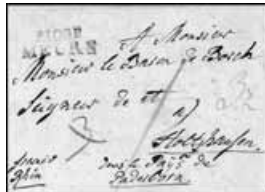 P103P
MEURS
A Monsieur
Monsieur le Baron de Bosch
Seigneur de et
a)
Holtzhausen
franco
Rhin
dans le Pays de
Paderborn